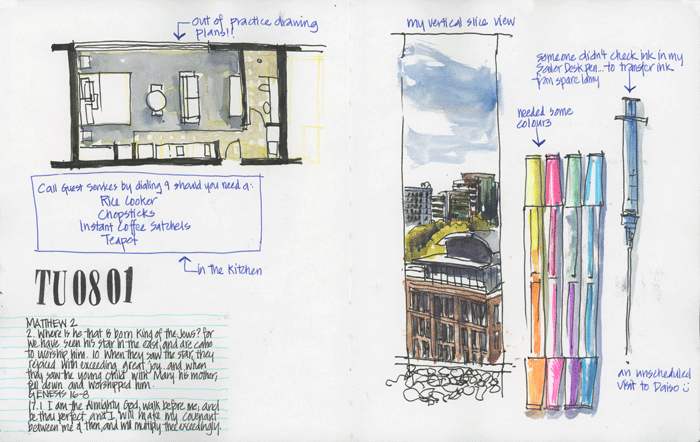 out of practice drawing
plans!!
Call Guest Services by dialing 9 should you need a:
Rice Cooker
Chopsticks
Instant Coffee Satchels
Teapot
in the kitchen
TU 08 01
MATTHEW 2
2. Where is he that is born King of the Jews? for
we have seen his star in the east, and are come
to worship him. 10 When they saw the star, they
rejoiced with exceeding great joy. and when
they saw the young child with Mary his mother,
fell down and worshipped him.
GENESIS 16-8
17.1 I am the Almighty God, walk before me, and
be thou perfect, and I will make my covenant
between me & thee, and will multiply thee exceedingly.
my vertical slice view
needed some
colours
someone didn't check ink in my
Sailor Desk pen... to transfer ink
from spare lamy
an unscheduled
visit to Daiso